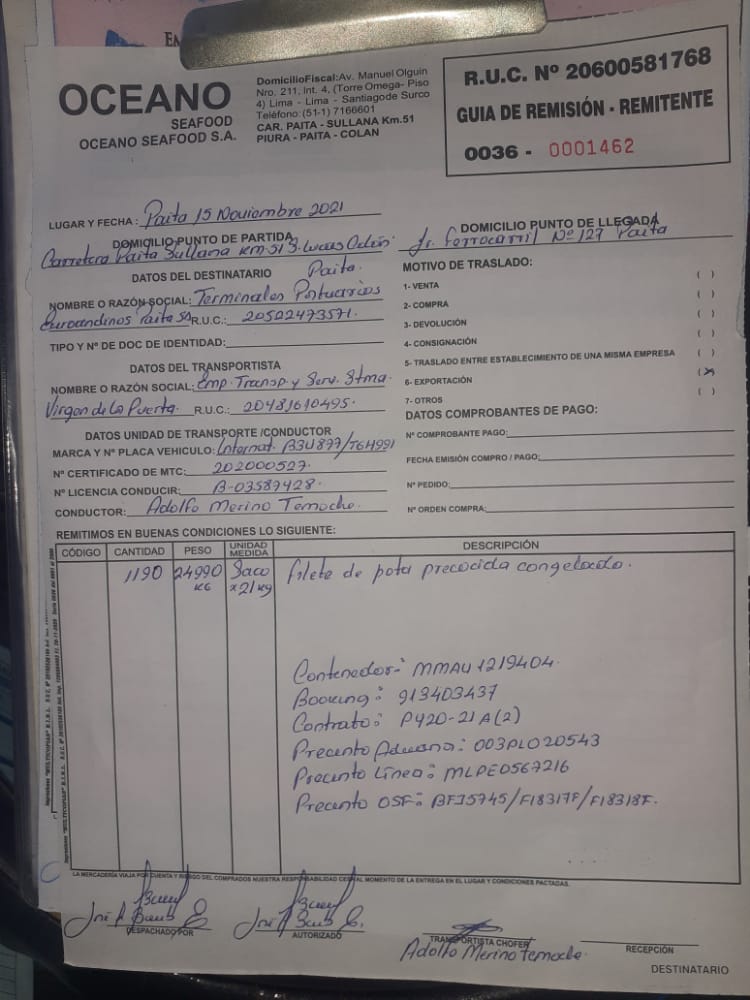 OCEANO
SEAFOOD
OCEANO SEAFOOD S.A.
Domicilio Fiscal: Av. Manuel Olguin
Nro. 211, Int. 4, (Torre Omega- Piso
4) Lima - Lima - Santiagode Surco
Teléfono: (51-1) 7166601
CAR. PAITA - SULLANA Km.51
PIURA - PAITA - COLAN
R.U.C. Nº 20600581768
GUIA DE REMISIÓN - REMITENTE
0036 - 0001462
LUGAR Y FECHA: Paita 15 Noviembre 2021
DOMICILIO PUNTO DE PARTIDA
Carretera Paita Sullana Km-51 S. Lucas Colán
Paita.
DOMICILIO PUNTO DE LLEGADA
Jr. Ferrocarril Nº 127 Paita
DATOS DEL DESTINATARIO
NOMBRE O RAZÓN SOCIAL: Terminales Portuarios
Euroandinos Paita SA R.U.C.: 20522473571.
TIPO Y Nº DE DOC DE IDENTIDAD:
DATOS DEL TRANSPORTISTA
NOMBRE O RAZÓN SOCIAL: Emp. Transp. y Serv. Stma.
Virgen de La Puerta. R.U.C.: 20481610495.
DATOS UNIDAD DE TRANSPORTE /CONDUCTOR
MARCA Y Nº PLACA VEHICULO: Internat. B3U877/T6H991
Nº CERTIFICADO DE MTC: 202000527.
Nº LICENCIA CONDUCIR: B-03587428.
CONDUCTOR: Adolfo Merino Temoche.
MOTIVO DE TRASLADO:
1- VENTA ( )
2- COMPRA ( )
3- DEVOLUCIÓN ( )
4- CONSIGNACIÓN ( )
5- TRASLADO ENTRE ESTABLECIMIENTO DE UNA MISMA EMPRESA ( )
6- EXPORTACIÓN (X)
7- OTROS ( )
DATOS COMPROBANTES DE PAGO:
Nº COMPROBANTE PAGO:
FECHA EMISIÓN COMPRO / PAGO:
Nº PEDIDO:
Nº ORDEN COMPRA:
REMITIMOS EN BUENAS CONDICIONES LO SIGUIENTE:
CÓDIGO CANTIDAD PESO UNIDAD MEDIDA DESCRIPCIÓN
1190 24990 KG Saco x21 kg filete de pota precocida congelado.
Contenedor: MMAU 1219404.
Booking: 913403437
Contrato: P420-21A(2)
Precinto Aduana: 003PL020543
Precinto Línea: MLPE0567216
Precinto OSF: BF15745/F18317F/F18318F.
LA MERCADERÍA VIAJA POR CUENTA Y RIESGO DEL COMPRADOS NUESTRA RESPONSABILIDAD CESA AL MOMENTO DE LA ENTREGA EN EL LUGAR Y CONDICIONES PACTADAS.
DESPACHADO POR
AUTORIZADO
TRANSPORTISTA CHOFER
Adolfo Merino Temoche.
RECEPCIÓN
DESTINATARIO